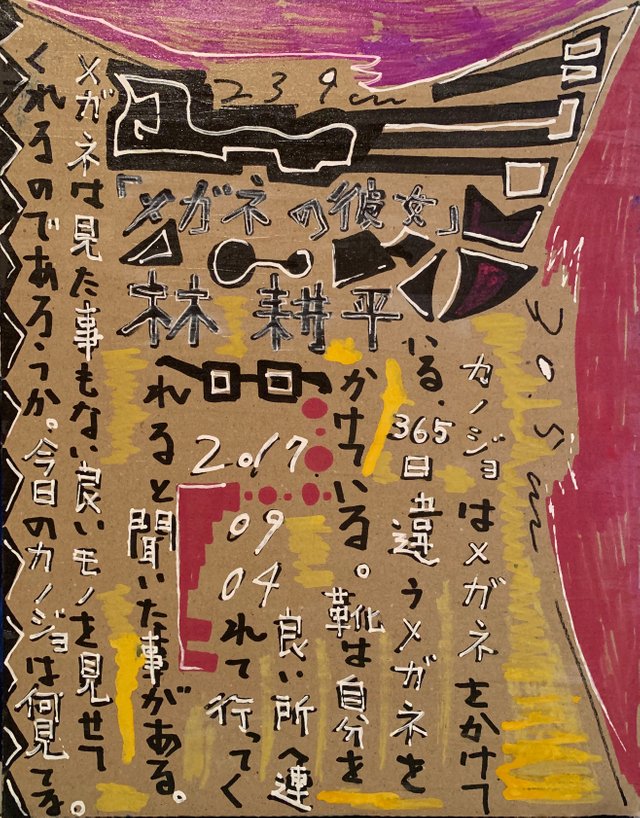 23.9cm
『メガネの彼女』
林 耕平
30.5cm
カノジョはメガネをかけて
いる.365日違うメガネを
かけている。靴は自分を
良い所へ連
れて行ってく
れると聞いた事がある。
メガネは見た事もない良いモノを見せて
くれるのであろうか。今日のカノジョは何見てる。
2017
09
04